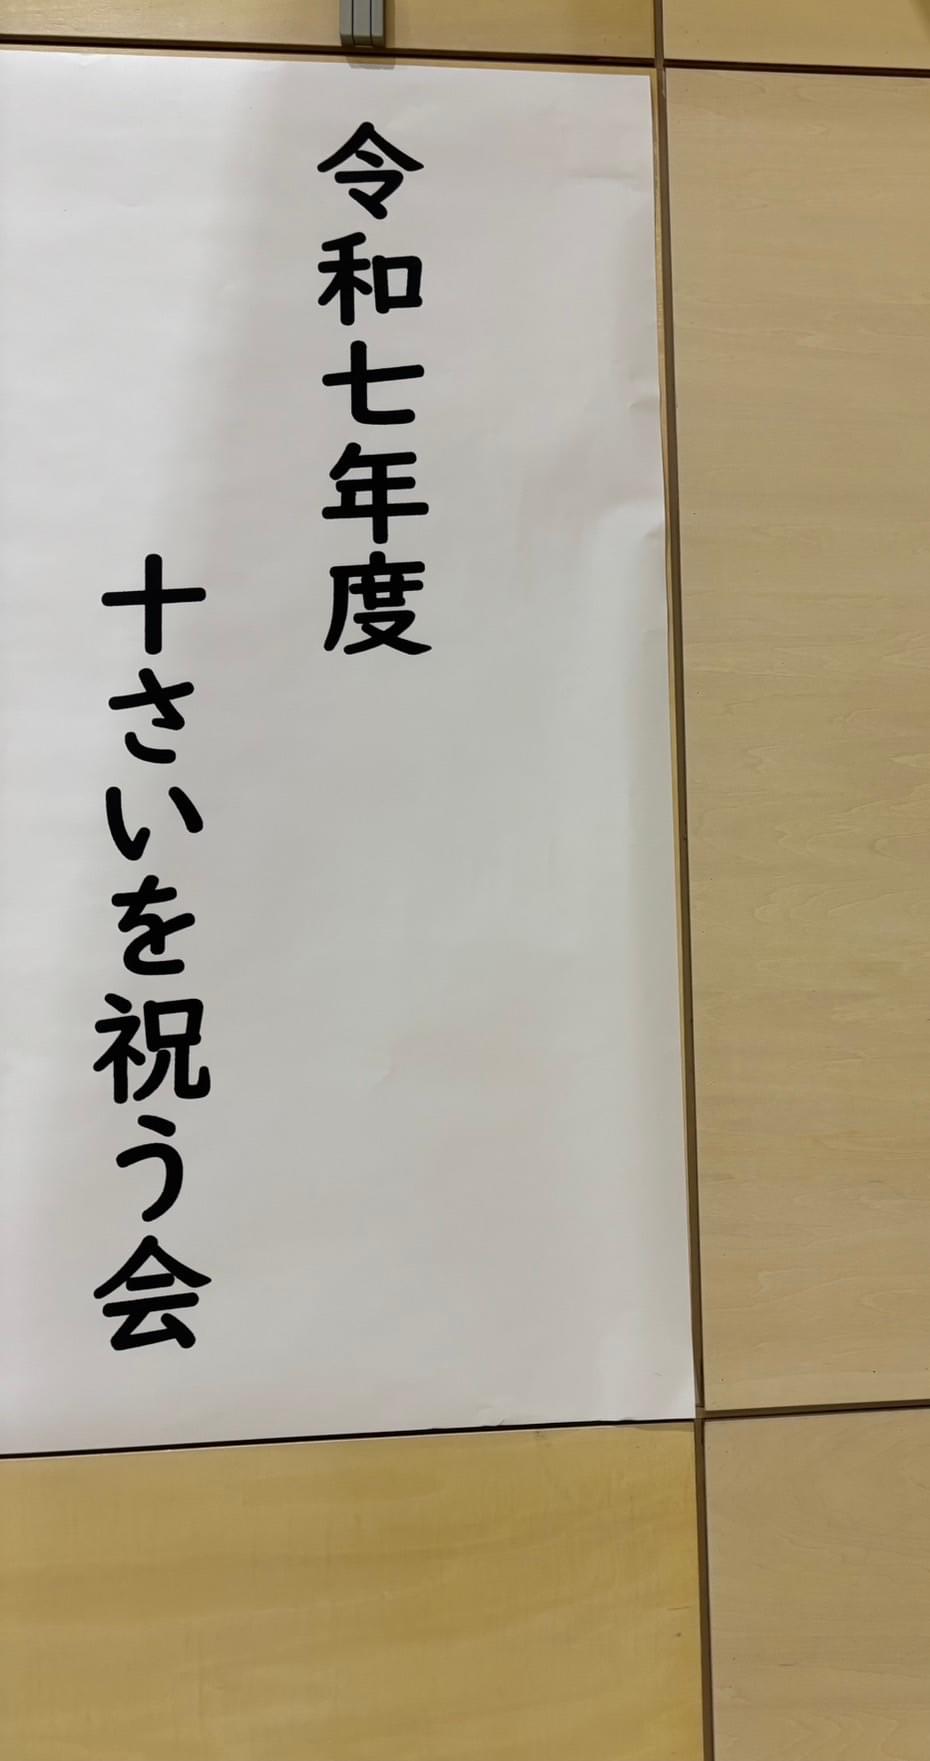 令和七年度
十さいを祝う会